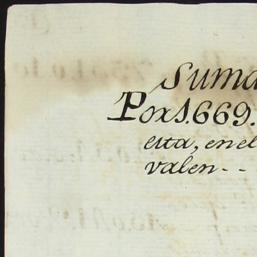 Suma
Por 1.669.
esta, en el
valen - -